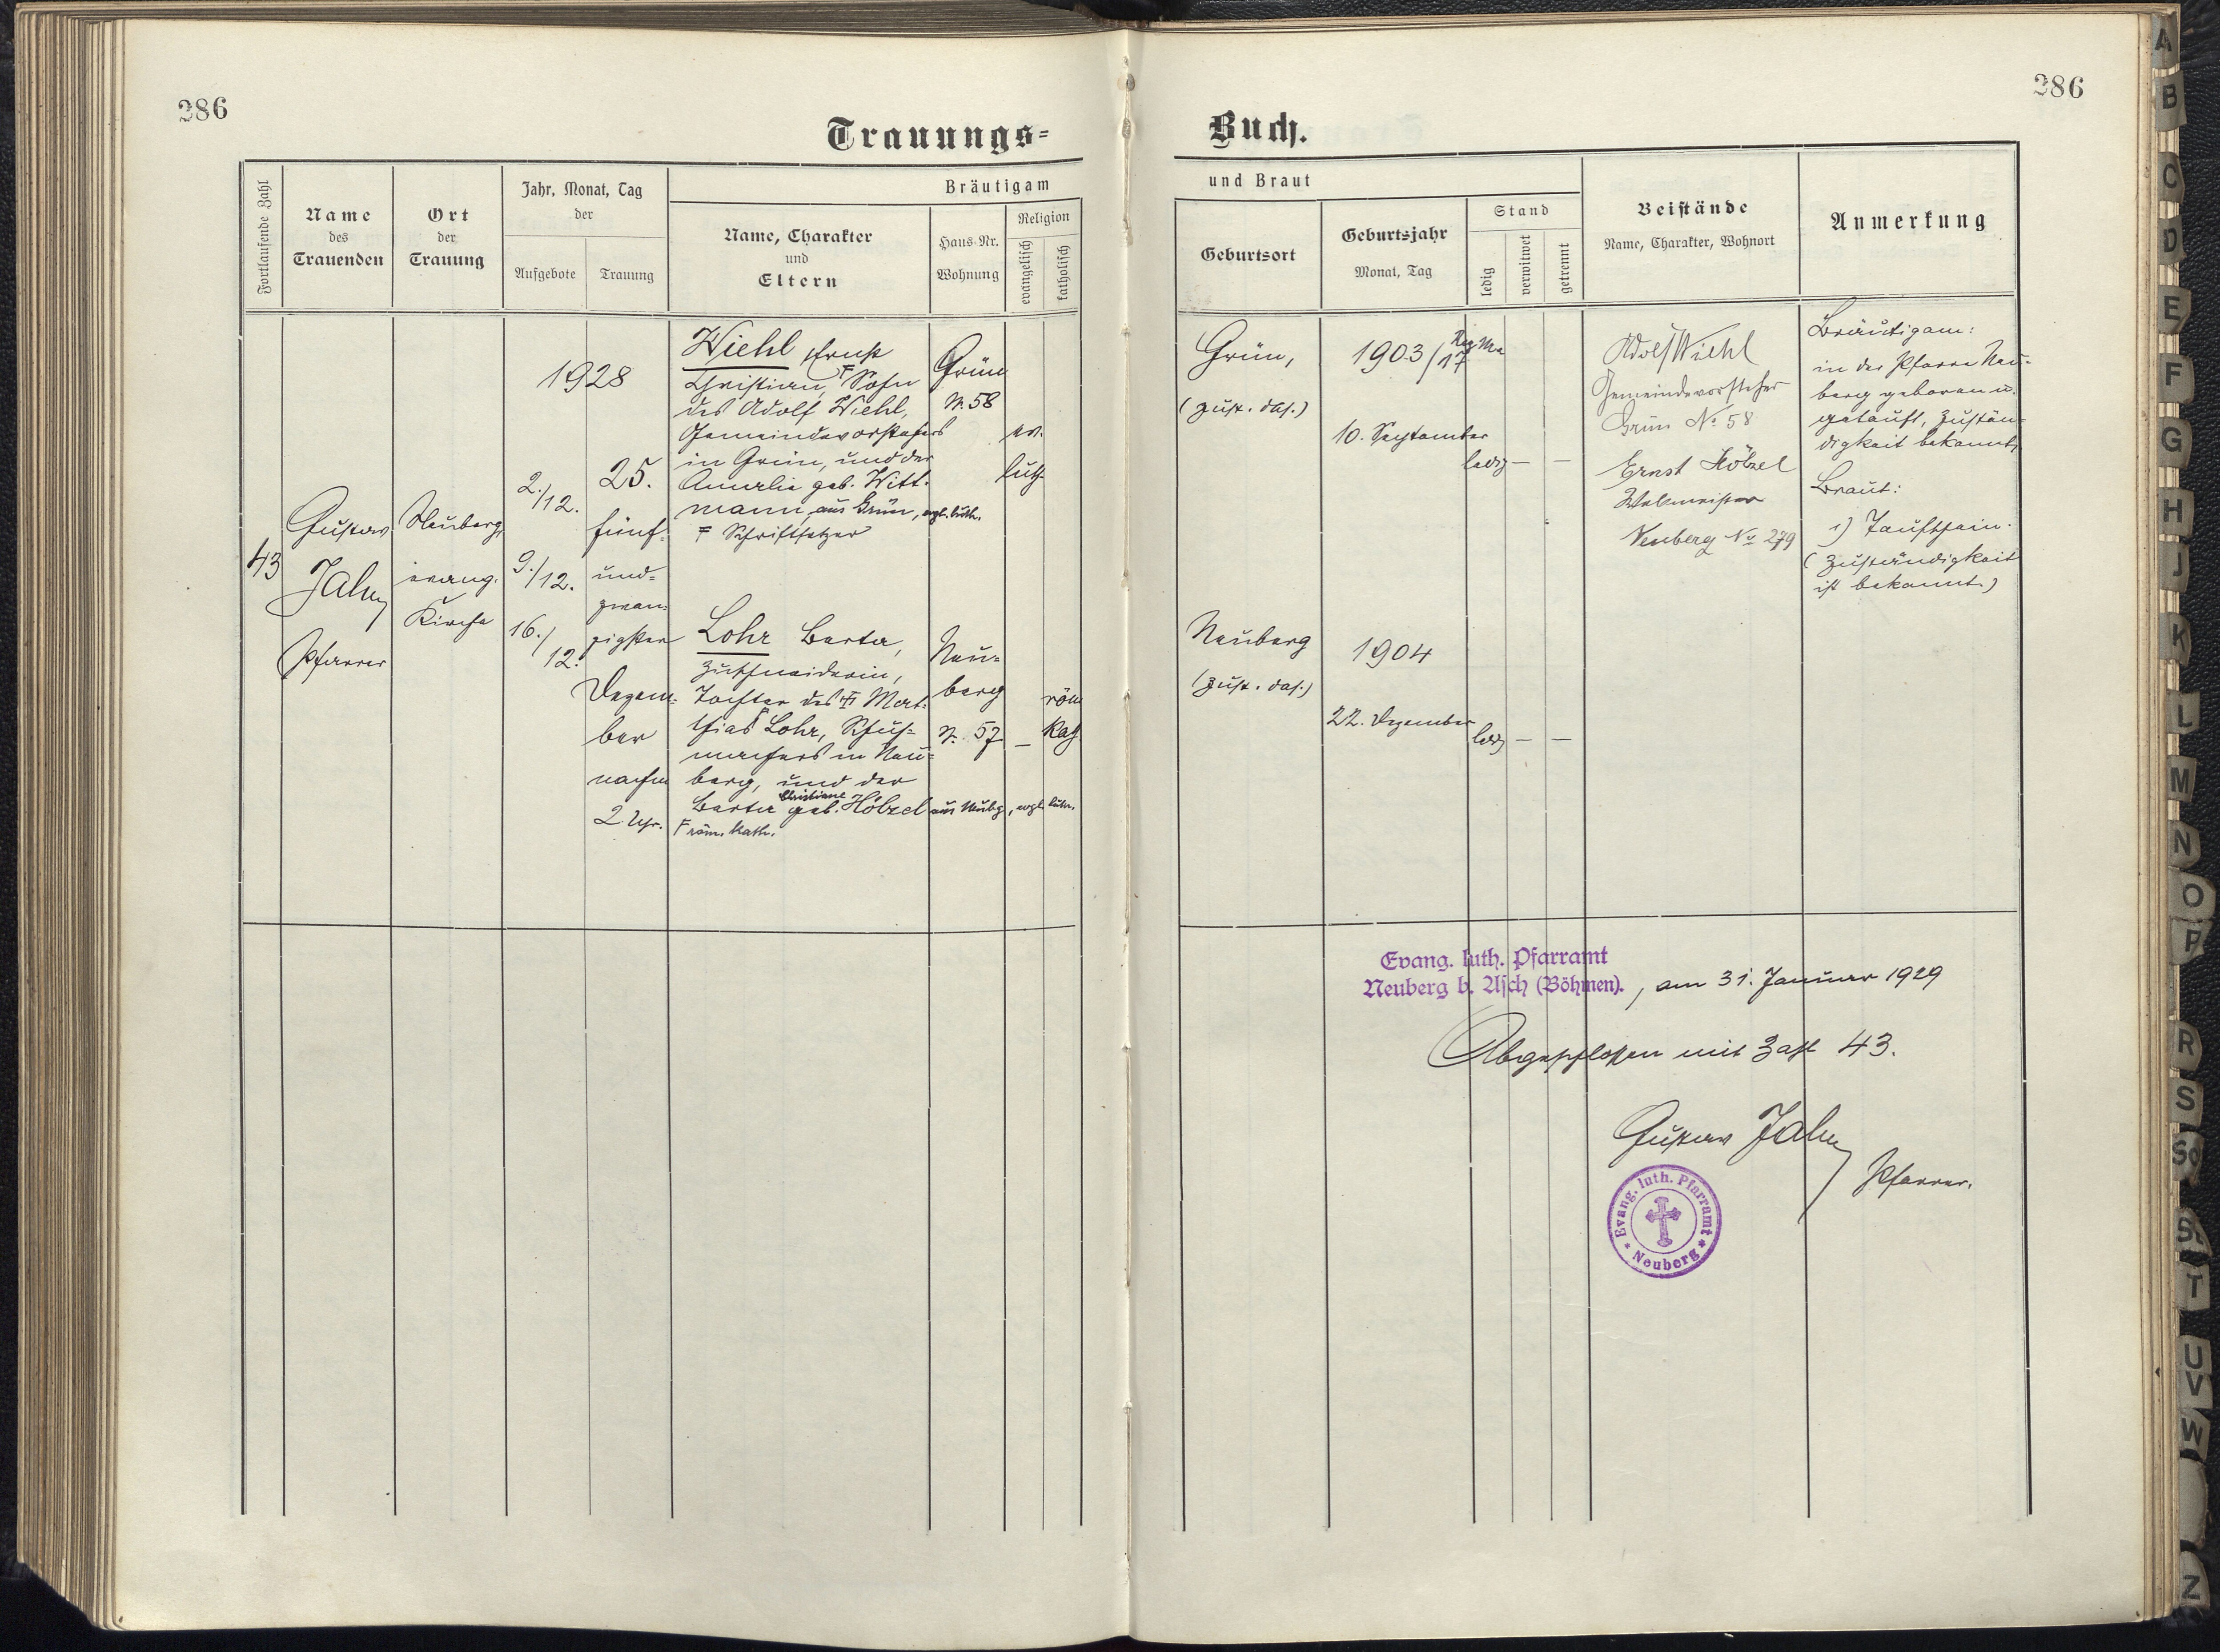 286
286
Trauungs=
Buch.
Fortlaufende Zahl
Name
des
Trauenden
Ort
der
Trauung
Jahr, Monat, Tag
der
Aufgebote
Trauung
Bräutigam
Name, Charakter
und
Eltern
Haus-Nr.
Wohnung
Religion
evangelisch
katholisch
und Braut
Geburtsort
Geburtsjahr
Monat, Tag
Stand
ledig
verwitwet
getrennt
Beistände
Name, Charakter, Wohnort
Anmerkung
43
Gustav
Jahn
Pfarrer
Neuberg,
evang.
Kirche
1928
2./12.
9./12.
16./12.
25.
fünf-
und-
zwan-
zigster
Dezem-
ber
nachm
2 Uhr.
Wiehl Ernst
Christian, Sohn
des Adolf Wiehl,
Gemeindevorstehers
in Grün, und der
Amalie geb. Witt-
mann, aus Grün, evgl. luth.
Schriftsetzer
Grün
N. 58
ev.
luth.
Lohr Berta,
Zuschneiderin,
Tochter des Mat-
thias Lohr, Schuh-
machers in Neu-
berg, und der
Christiane
Berta geb. Hölzel aus Nbg, evgl. luth.
röm. kath.
Neu-
berg
N. 57
–
röm
kath.
Grün,
(zust. das.)
1903/17
10. September
ledig – –
Neuberg
(zust. das.)
1904
22. Dezember
ledig – –
Adolf Wiehl
Gemeindevorsteher
Grün No. 58
Ernst Hölzel
Webmeister
Neuberg No 279
Bräutigam:
in der Pfarre Neu-
berg geboren u.
getauft, Zustän-
digkeit bekannt,
Braut:
1) Taufschein.
(Zuständigkeit
ist bekannt.)
Evang. luth. Pfarramt
Neuberg b. Asch (Böhmen)., am 31. Januar 1929
Abgeschlossen mit Zahl 43.
Gustav Jahn
Pfarrer.
Evang. luth. Pfarramt
* Neuberg *
A
B
C
D
E
F
G
H
J
K
L
M
N
O
P
R
S
Sc
St
T
U
V
W
Z